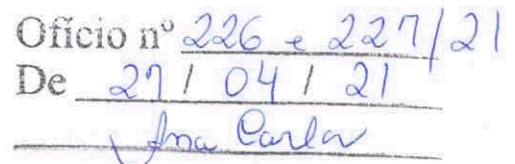 Ofício nº 226 e 227/21
De 27 / 04 / 21
Ana Carla